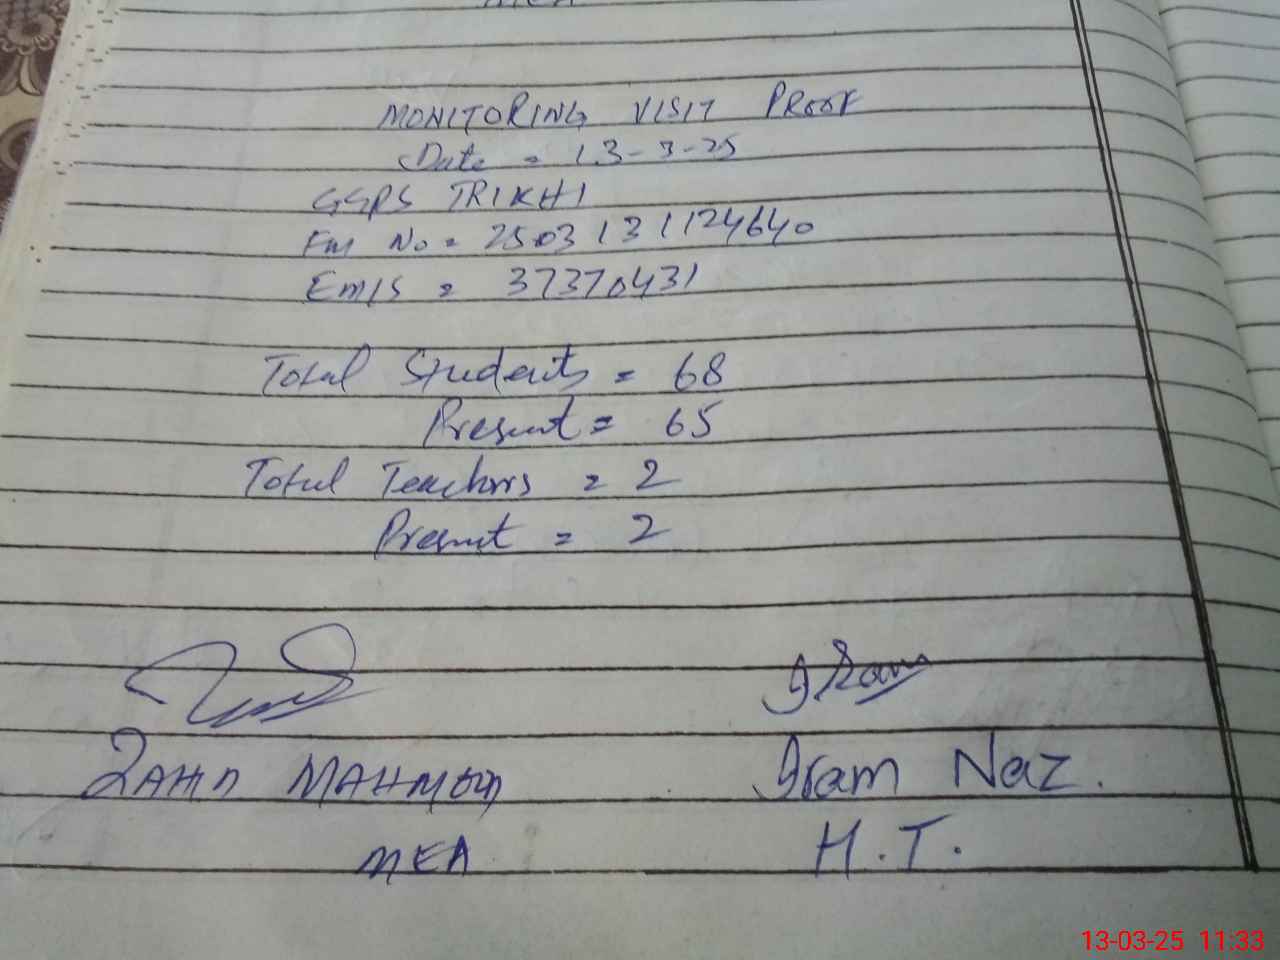 MEA
MONITORING VISIT PROOF
Date = 13-3-25
GGPS TRIKHI
Fm No = 2503131124640
EMIS = 37370431
Total Students = 68
Present = 65
Total Teachers = 2
Present = 2
Iram
ZAHID MAHMOOD Iram Naz.
MEA H.T.
13-03-25 11:33